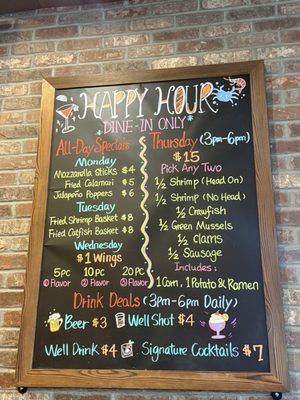 HAPPY HOUR
DINE-IN ONLY
All-Day Specials
Monday
Mozzarella Sticks $4
Fried Calamari $5
Jalapeño Poppers $6
Tuesday
Fried Shrimp Basket $8
Fried Catfish Basket $8
Wednesday
$1 Wings
5pc 10pc 20pc
① Flavor ② Flavor ③ Flavor
Thursday (3pm-6pm)
$15
Pick Any Two
½ Shrimp (Head On)
½ Shrimp (No Head)
½ Crawfish
½ Green Mussels
½ Clams
½ Sausage
Includes:
1 Corn, 1 Potato & Ramen
Drink Deals (3pm-6pm Daily)
Beer $3 Well Shot $4
Well Drink $4 Signature Cocktails $7